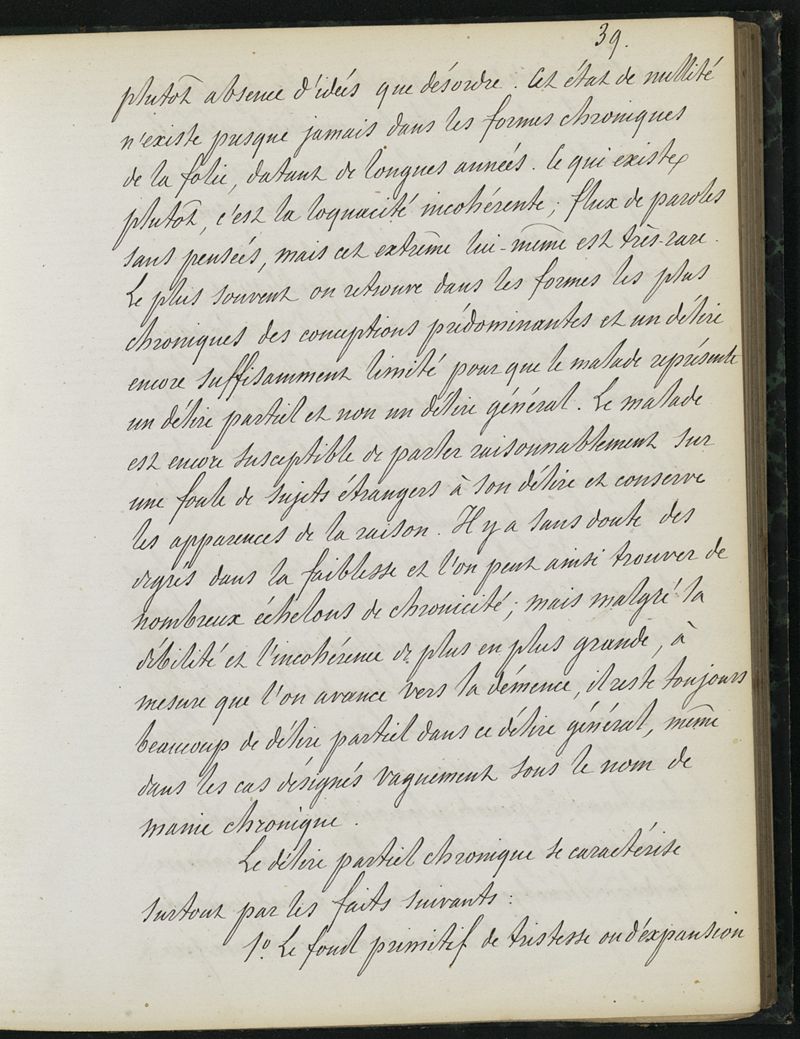 39.
plutôt absence d'idées que désordre. Cet état de nullité
n'existe presque jamais dans les formes chroniques
de la folie, datant de longues années. Ce qui existe
plutôt, c'est la loquacité incohérente; flux de paroles
sans pensées, mais cet extrême lui-même est très-rare.
Le plus souvent on retrouve dans les formes les plus
chroniques des conceptions prédominantes et un délire
encore suffisamment limité pour que le malade représente
un délire partiel et non un délire général. Le malade
est encore susceptible de parler raisonnablement sur
une foule de sujets étrangers à son délire et conserve
les apparences de la raison. Il y a sans doute des
degrés dans la faiblesse et l'on peut ainsi trouver de
nombreux échelons de chronicité; mais malgré la
débilité et l'incohérence de plus en plus grande, à
mesure que l'on avance vers la démence, il reste toujours
beaucoup de délire partiel dans ce délire général, même
dans les cas désignés vaguement sous le nom de
manie chronique.
Le délire partiel chronique se caractérise
surtout par les faits suivants:
1º. Le fond primitif de tristesse ou d'expansion